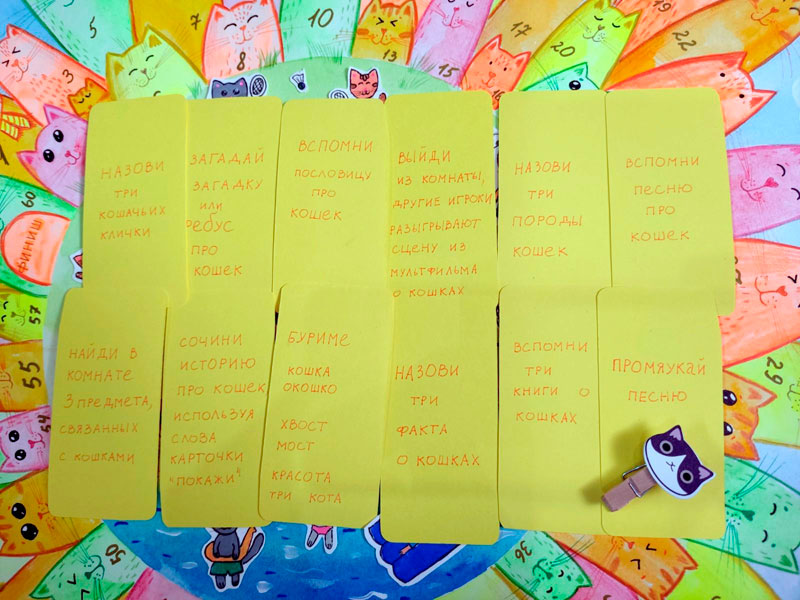 НАЗОВИ
ТРИ
КОШАЧЬИХ
КЛИЧКИ
ЗАГАДАЙ
ЗАГАДКУ
ИЛИ
РЕБУС
ПРО
КОШЕК
ВСПОМНИ
ПОСЛОВИЦУ
ПРО
КОШЕК
ВЫЙДИ
ИЗ КОМНАТЫ,
ДРУГИЕ ИГРОКИ
РАЗЫГРЫВАЮТ
СЦЕНУ ИЗ
МУЛЬТФИЛЬМА
О КОШКАХ
НАЗОВИ
ТРИ
ПОРОДЫ
КОШЕК
ВСПОМНИ
ПЕСНЮ
ПРО
КОШЕК
НАЙДИ В
КОМНАТЕ
3 ПРЕДМЕТА,
СВЯЗАННЫХ
С КОШКАМИ
СОЧИНИ
ИСТОРИЮ
ПРО КОШЕК,
ИСПОЛЬЗУЯ
СЛОВА
КАРТОЧКИ
"ПОКАЖИ"
БУРИМЕ
КОШКА
ОКОШКО
ХВОСТ
МОСТ
КРАСОТА
ТРИ КОТА
НАЗОВИ
ТРИ
ФАКТА
О КОШКАХ
ВСПОМНИ
ТРИ
КНИГИ О
КОШКАХ
ПРОМЯУКАЙ
ПЕСНЮ
3
5
8
10
13
15
17
20
19
22
29
36
50
54
55
57
60
ФИНИШ